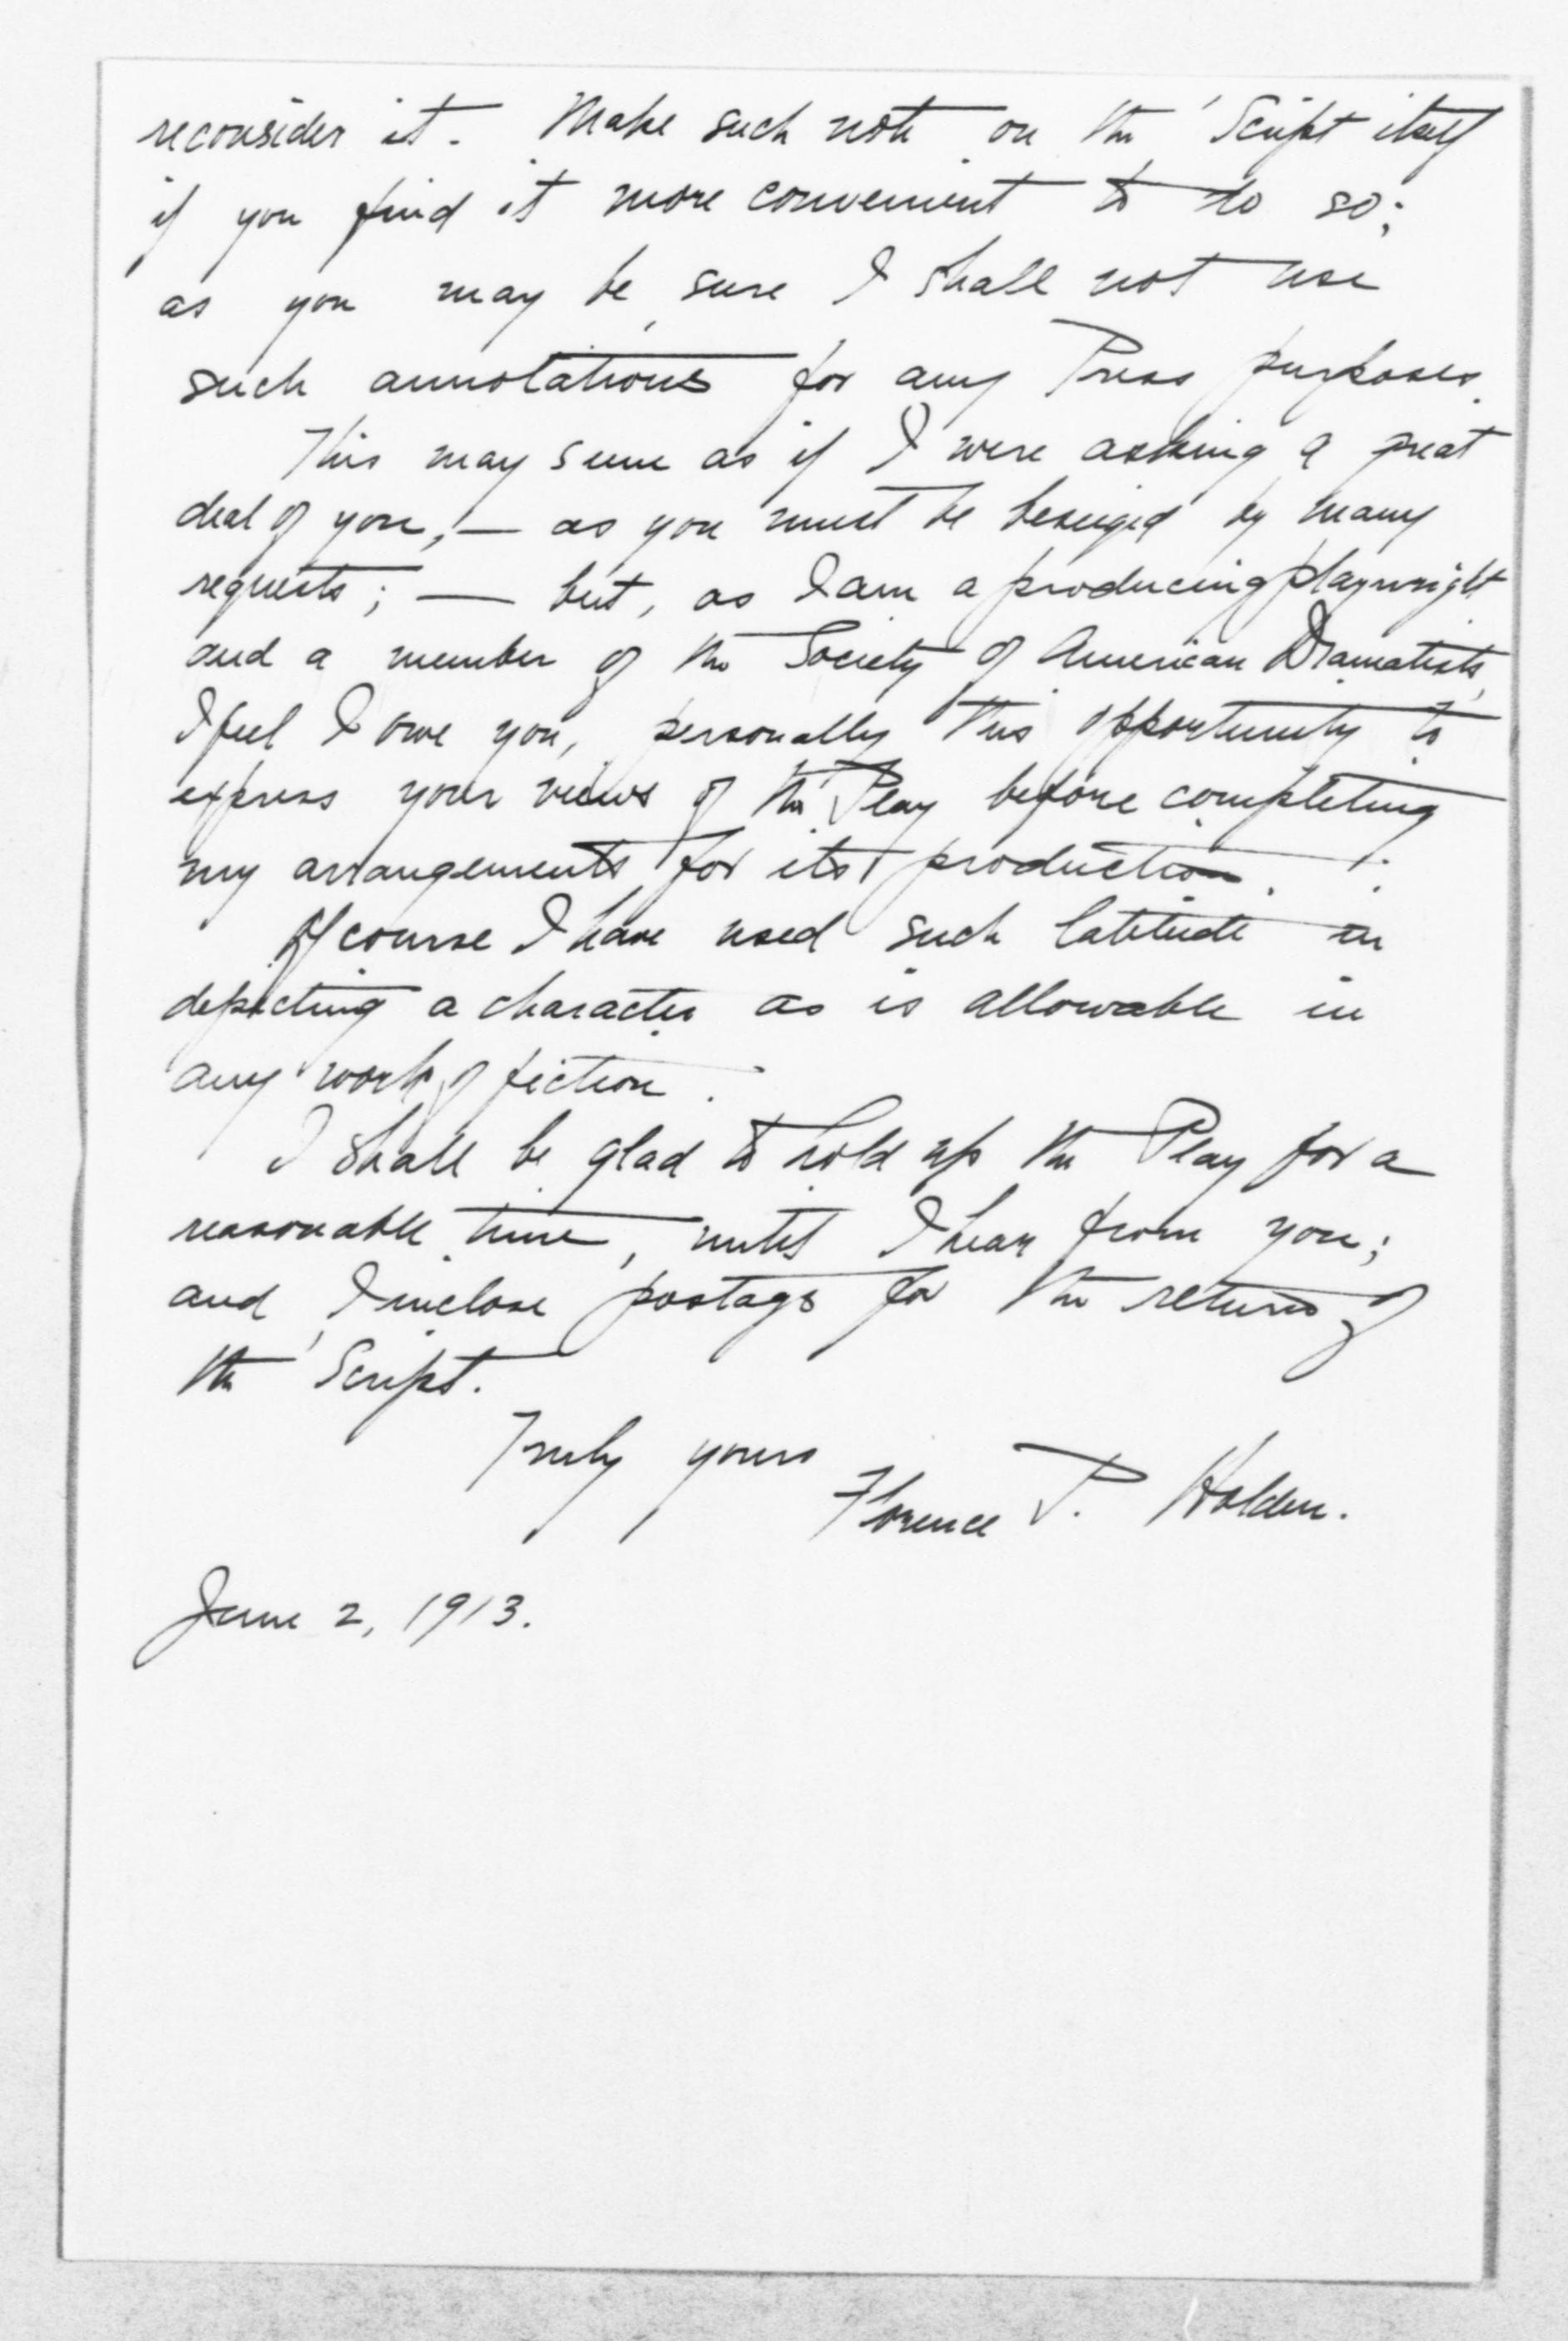 reconsider it. Make such note on the 'Script itself
if you find it more convenient to do so;
as you may be sure I shall not use
such annotations for any Press purposes.
This may seem as if I were asking a great
deal of you, — as you must be beseiged by many
requests; — but, as I am a producing playwright
and a member of the Society of American Dramatists,
I feel I owe you, personally this opportunity to
express your views of the Play before completing
my arrangements for its production.
Of course I have used such latitude in
depicting a character as is allowable in
any work of fiction.
I shall be glad to hold up the Play for a
reasonable time, until I hear from you;
and I inclose postage for the return of
the 'Script.
Truly yours
Florence P. Holden.
June 2, 1913.